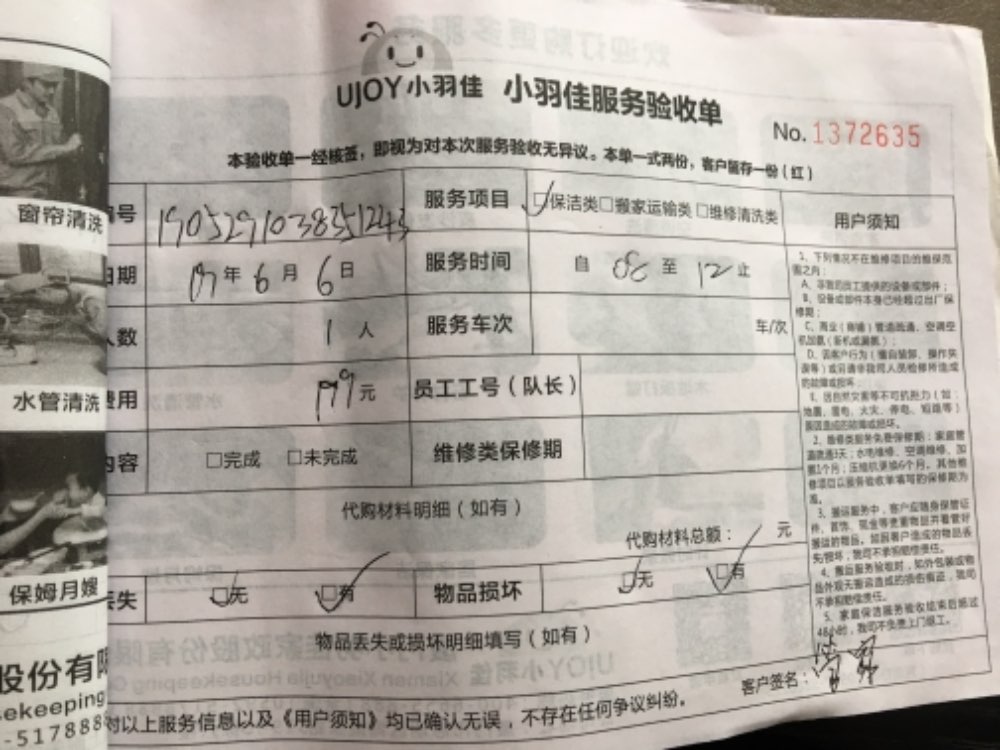 UJOY小羽佳 小羽佳服务验收单
No. 1372635
本验收单一经核签，即视为对本次服务验收无异议。本单一式两份，客户留存一份（红）
号 服务项目 □保洁类□搬家运输类□维修清洗类
日期 年6月6日 服务时间 自 08 至 12止
人数 1人 服务车次 车/次
费用 199元 员工工号（队长）
内容 □完成 □未完成 维修类保修期
代购材料明细（如有）
代购材料总额： 元
丢失 □无 □有 物品损坏 □无 □有
物品丢失或损坏明细填写（如有）
客户签名：
对以上服务信息以及《用户须知》均已确认无误，不存在任何争议纠纷。
用户须知
1、下列情况不在维修项目的维保范
围之内：
A、非我司员工提供的设备或部件；
B、设备或部件本身已经超过出厂保
修期；
C、商业（商铺）管道疏通、空调空
机加氨（新机或漏氨）；
D、因客户行为（擅自装卸、操作失
误等）或召请非我司人员检修所造成
的故障或损坏
E、因自然灾害等不可抗拒力（如：
地震、雷电、火灾、停电、短路等）
原因造成的故障或损坏。
2、维修类服务免费保修期：家庭管
道疏通3天；水电维修、空调维修、加
氨1个月；压缩机更换6个月。其他维
修项目以服务验收单填写的保修期为
准。
3、搬运服务中，客户应随身保管证
件、首饰、现金等贵重物品并看管好
搬运的物品。如因客户造成的物品丢
失/损坏，我司不承担赔偿责任。
4、搬后服务验收时，如外包装或物
品外观无搬运造成的损伤痕迹，我司
不承担赔偿责任。
5、家庭保洁服务验收结束后超过
48小时，我司不负责上门返工。
窗帘清洗
水管清洗
保姆月嫂
股份有限
sekeeping
-517888